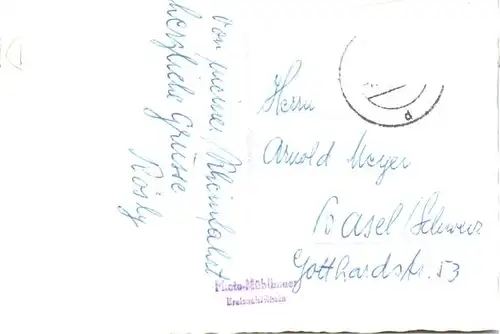 Von meiner Rheinfahrt
herzliche Grüsse
Rösly
Herrn
Arnold Meyer
Basel/Schweiz
Gotthardstr. 53
Photo-Mühlbauer